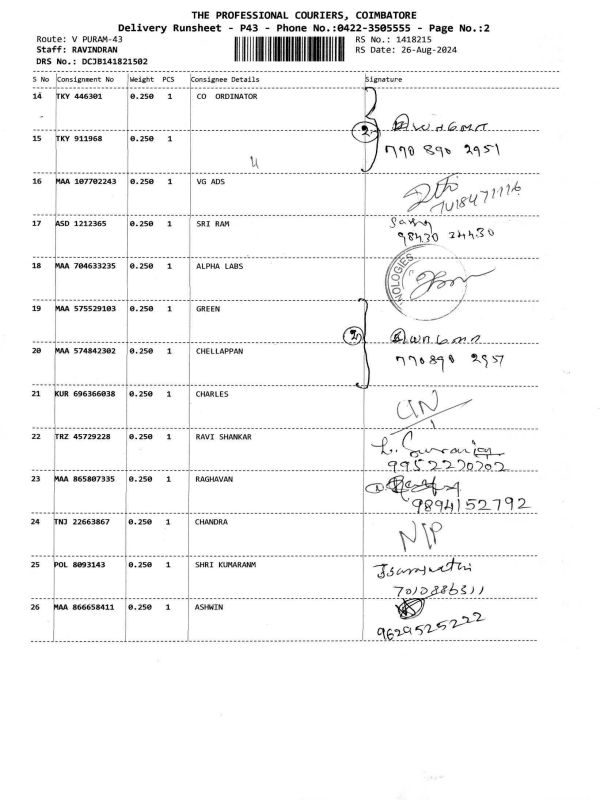 THE PROFESSIONAL COURIERS, COIMBATORE
Delivery Runsheet - P43 - Phone No.:0422-3505555 - Page No.:2
Route: V PURAM-43 RS No.: 1418215
Staff: RAVINDRAN RS Date: 26-Aug-2024
DRS No.: DCJB141821502
S No Consignment No Weight PCS Consignee Details Signature
14 TKY 446301 0.250 1 CO ORDINATOR
2
15 TKY 911968 0.250 1
770 890 2957
16 MAA 107702243 0.250 1 VG ADS
17 ASD 1212365 0.250 1 SRI RAM
98430 24430
18 MAA 704633235 0.250 1 ALPHA LABS
NOLOGIES
19 MAA 575529103 0.250 1 GREEN
2
20 MAA 574842302 0.250 1 CHELLAPPAN
770890 2957
21 KUR 696366038 0.250 1 CHARLES
22 TRZ 45729228 0.250 1 RAVI SHANKAR
9952270702
23 MAA 865807335 0.250 1 RAGHAVAN
9894152792
24 TNJ 22663867 0.250 1 CHANDRA
N/P
25 POL 8093143 0.250 1 SHRI KUMARANM
7010886311
26 MAA 866658411 0.250 1 ASHWIN
9629525222